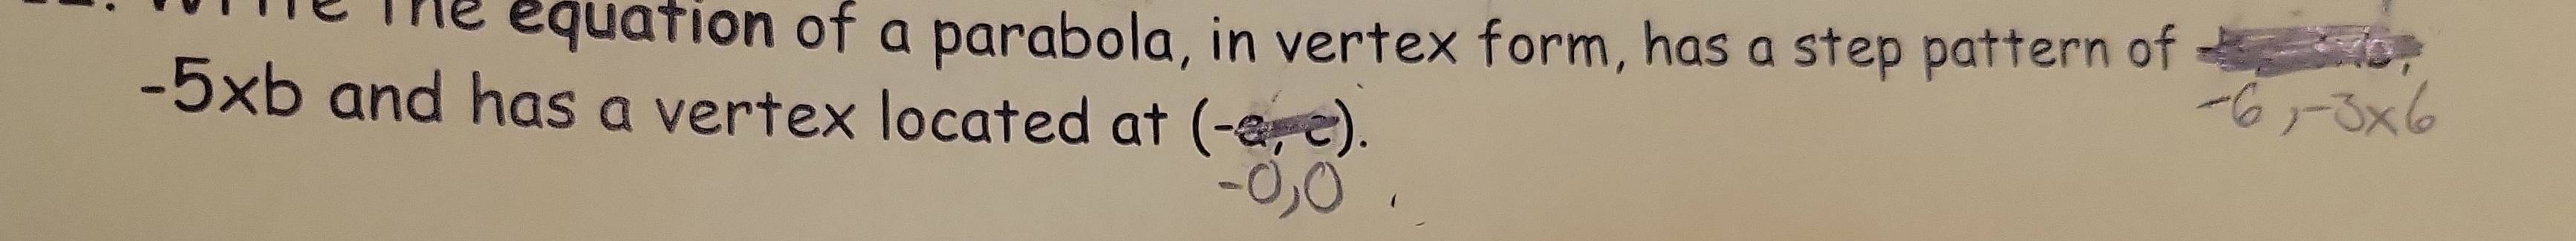 Write the equation of a parabola, in vertex form, has a step pattern of
-6, -3x6
-5xb and has a vertex located at (-a, c).
-0,0